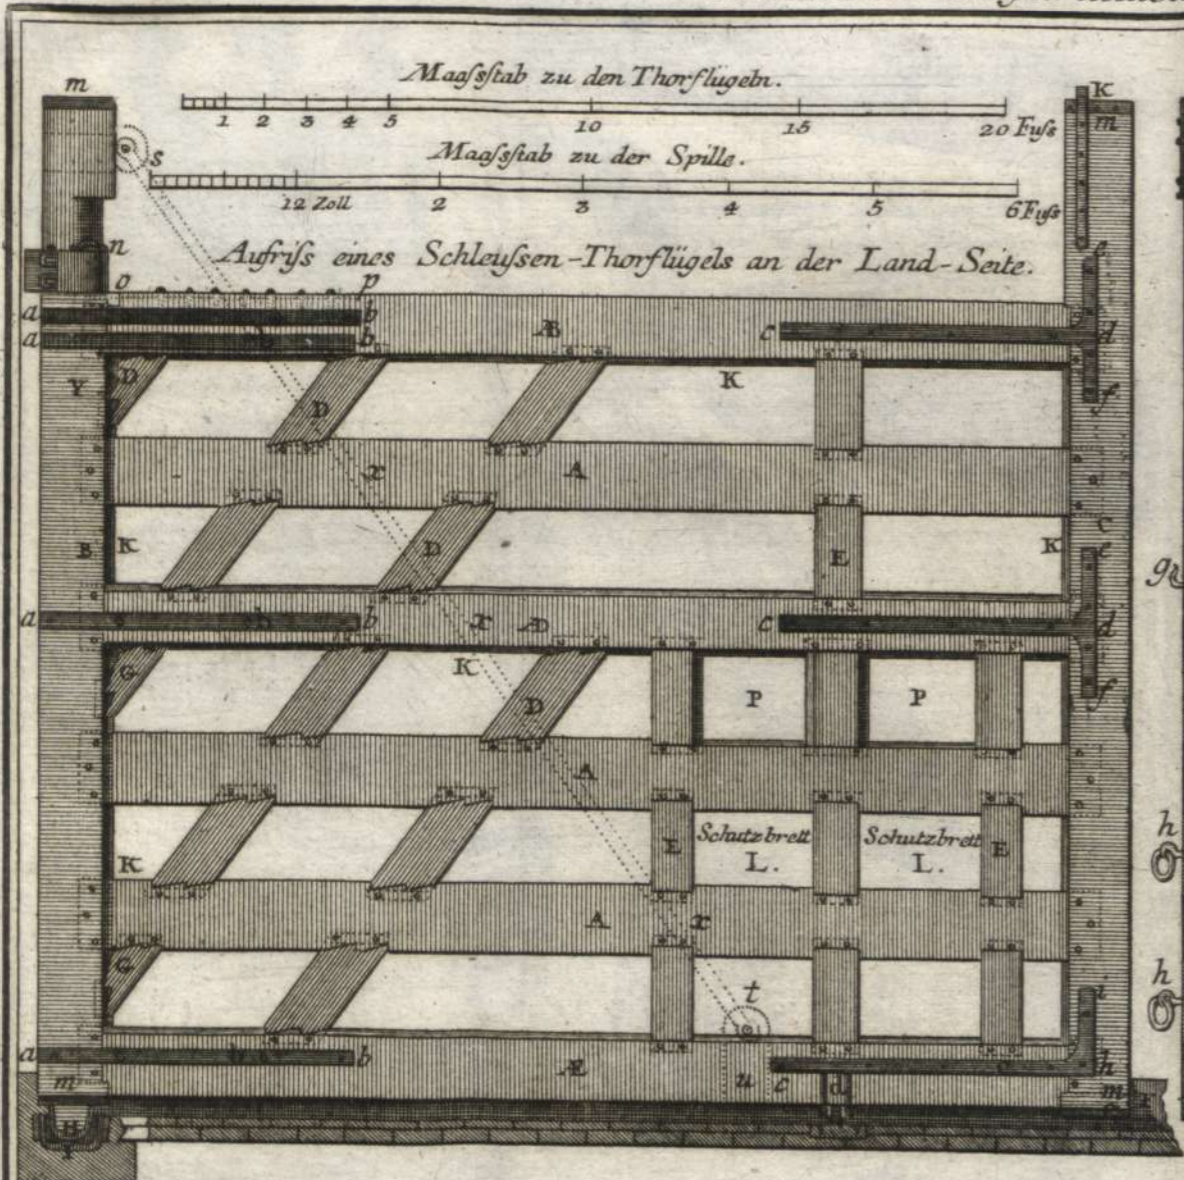 Maaſsſtab zu den Thorflügeln.
m
K
m
1 2 3 4 5 10 15 20 Fuſs
s
Maaſsſtab zu der Spille.
12 Zoll 2 3 4 5 6 Fuſs
n
Aufriſs eines Schleuſsen-Thorflügels an der Land-Seite.
e
o p
a b Æ c d
a b b
Y D K
D f
x A
C
B K D E K e
g
a b b x Æ c d
K
G f
D P P
A
h
Schutzbrett Schutzbrett
K E L. L. E
A x
G h
t i
a b b Æ u c d c h
m m
H
I